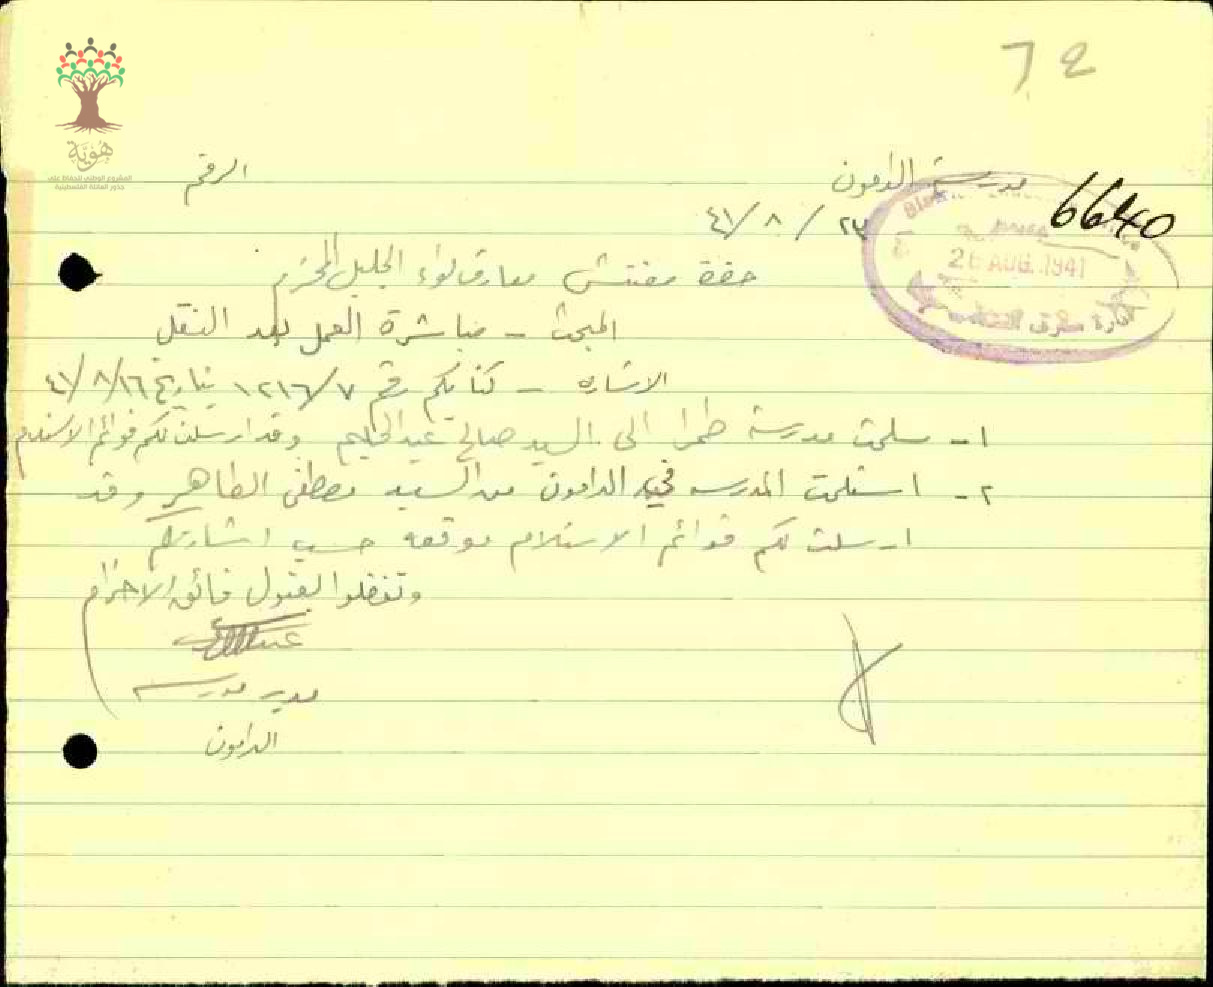 72
هُوِيَّة
المشروع الوطني للحفاظ على
جذور العائلة الفلسطينية
مدرسة الدامون
الرقم
6640
٢٣ / ٨ / ٤١
26 AUG. 1941
ادارة معارف
حضرة مفتش معارف لواء الجليل المحترم
المبحث - مباشرة العمل بعد النقل
الاشاره - كتابكم رقم ١٢١٦/٧ بتاريخ ٤١/٨/١٦
١- سلمت مدرسة طمرا الى السيد صالح عبد الحليم وقد ارسلت لكم قوائم الاستلام
٢- استلمت المدرسه في الدامون من السيد مصطفى الطاهر وقد
ارسلت لكم قوائم الاستلام موقعه حسب اشارتكم
وتفضلوا بقبول فائق الاحترام
مدير مدرسة
الدامون